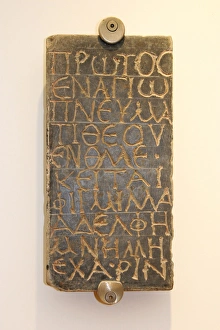 ΠΡΩΤΟC
ΕΝΑΓΙΩ
ΠΝΕΥΜΑ
ΤΙΘΕΟΥ
ΕΝΘΑΔΕ
ΚΕΙΤΑΙ
ΦΙΡΜΙΛΛΑ
ΑΔΕΛΦΗ
ΜΝΗΜΗ
CΧΑΡΙΝ